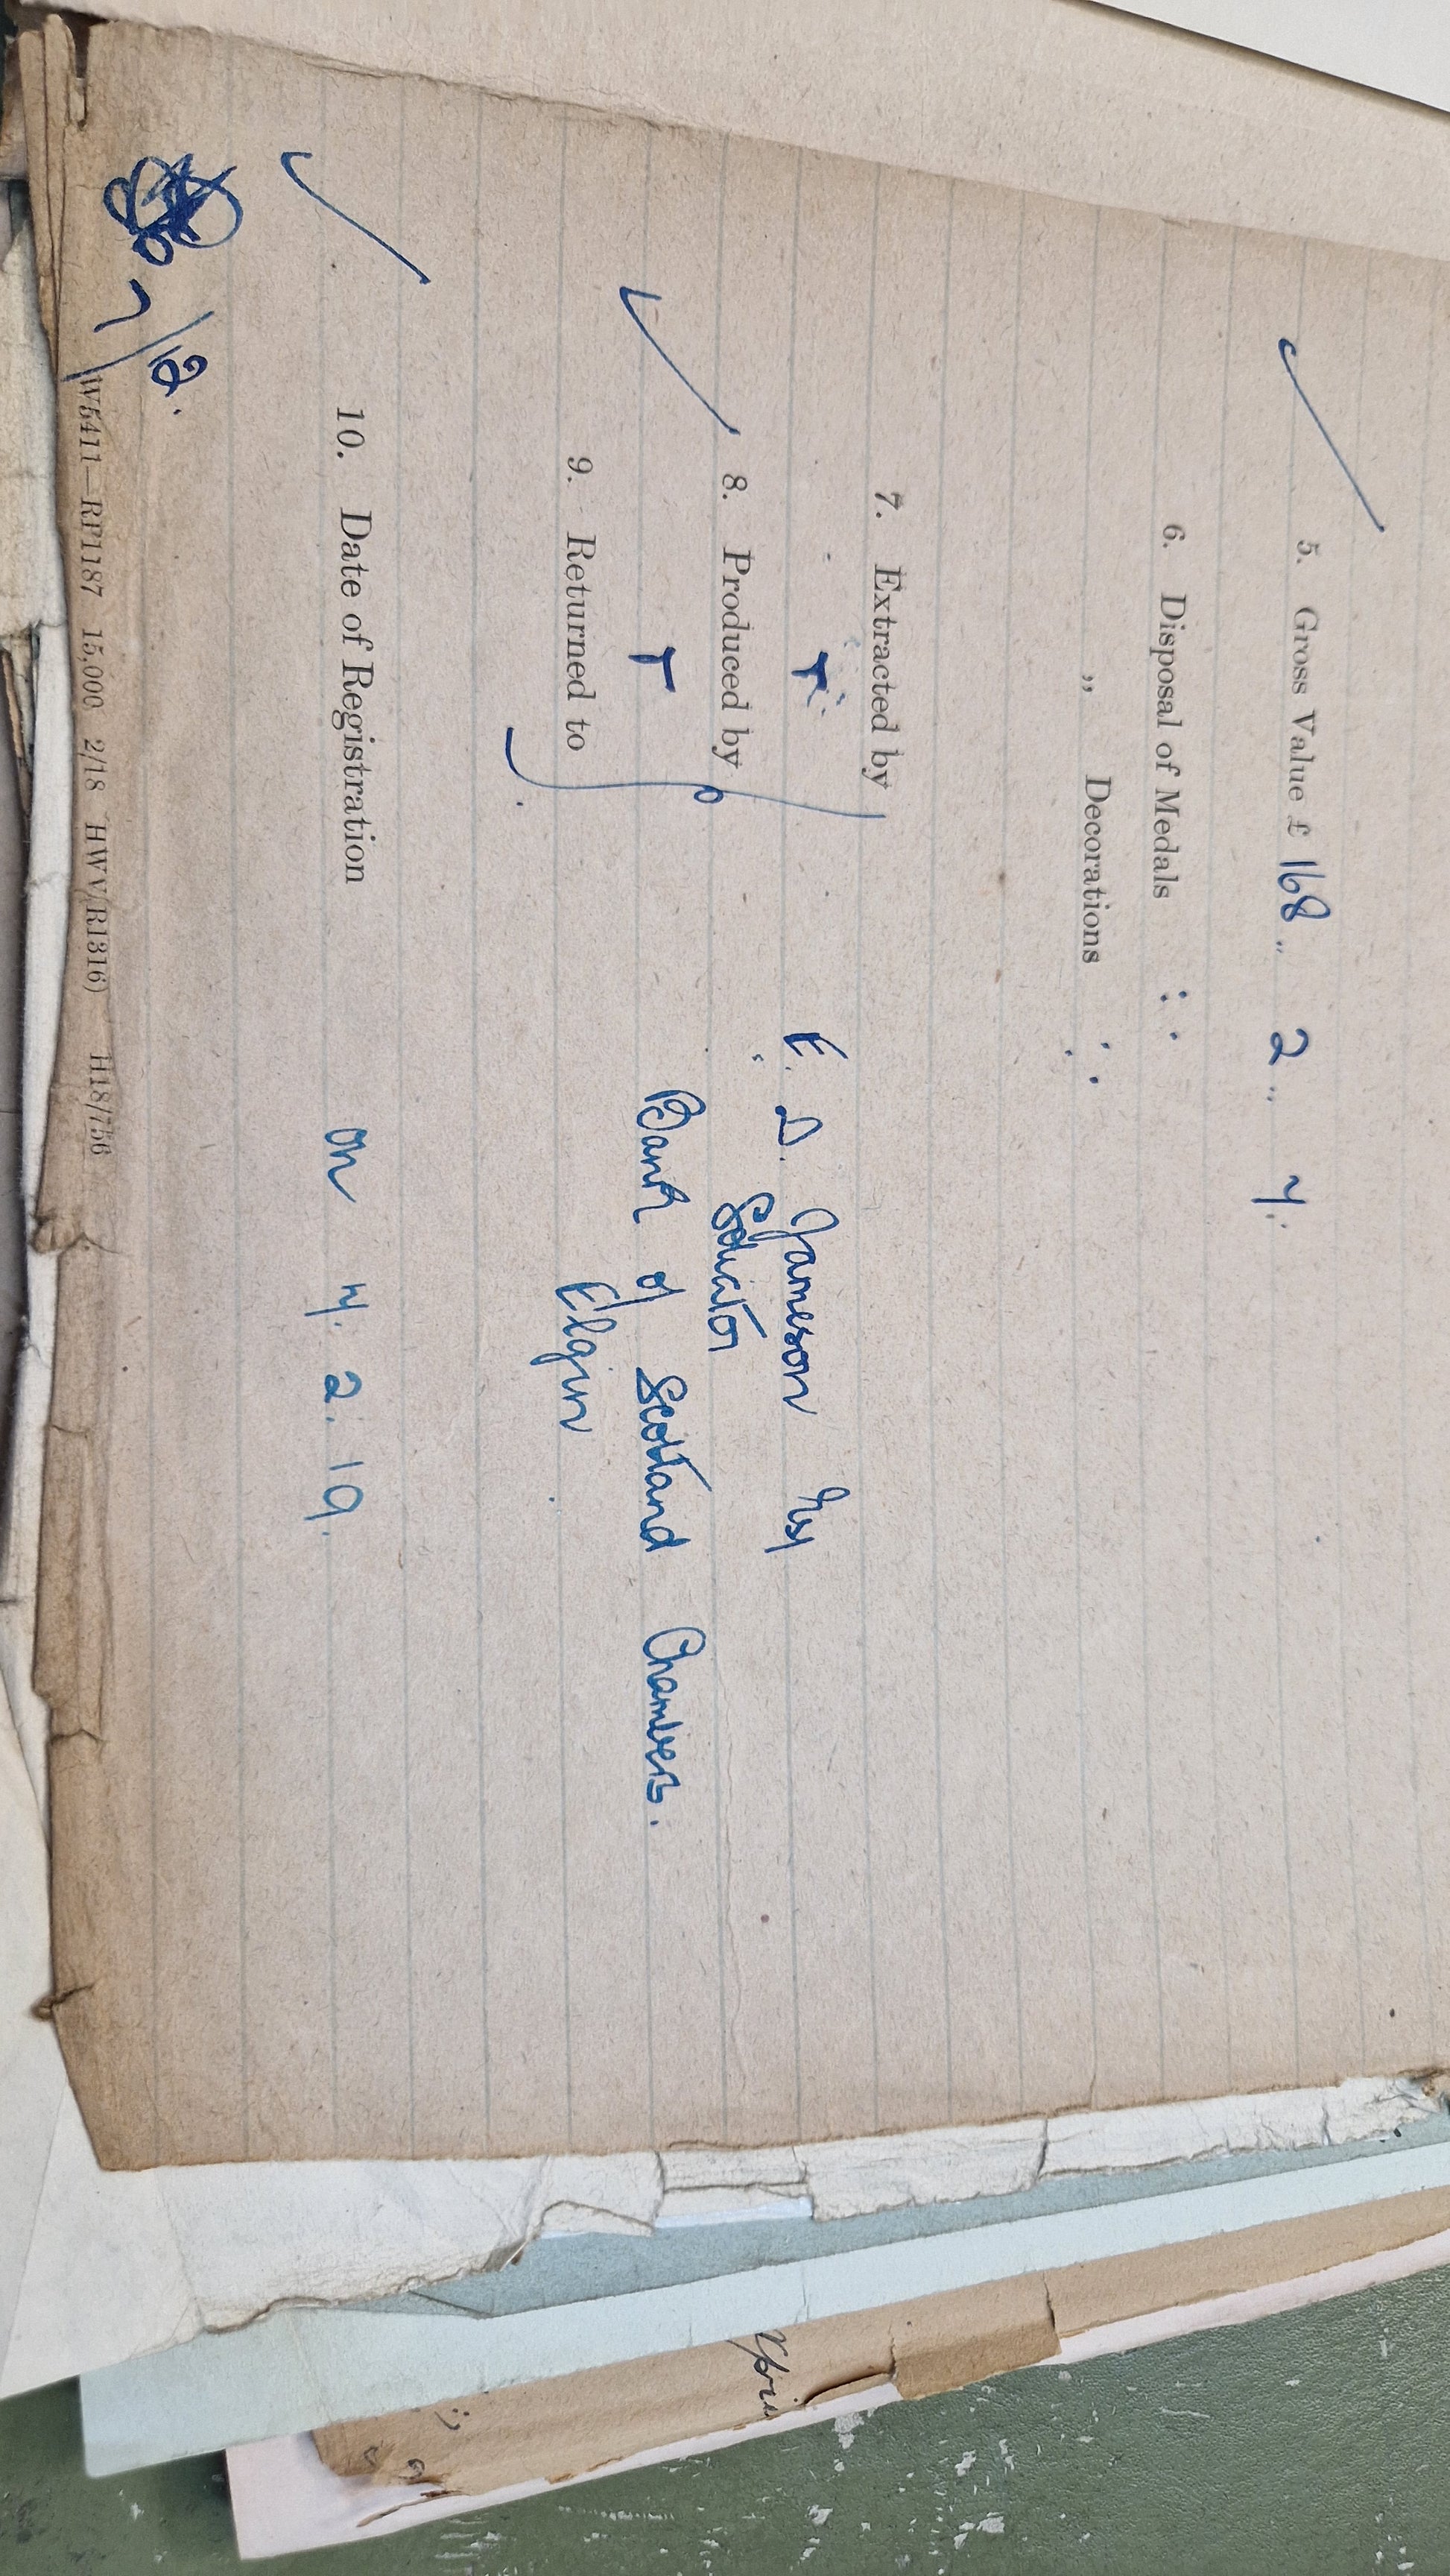 5. Gross Value £ 168 .. 2 .. 4.
6. Disposal of Medals : .
„ Decorations : .
7. Extracted by
E. D. Jameson Esq
8. Produced by
Solicitor
Bank of Scotland Chambers.
9. Returned to
Elgin
10. Date of Registration on 4. 2. 19.
7/12.
W5411—RP1187 15,000 2/18 HWV(R1316) H18/756